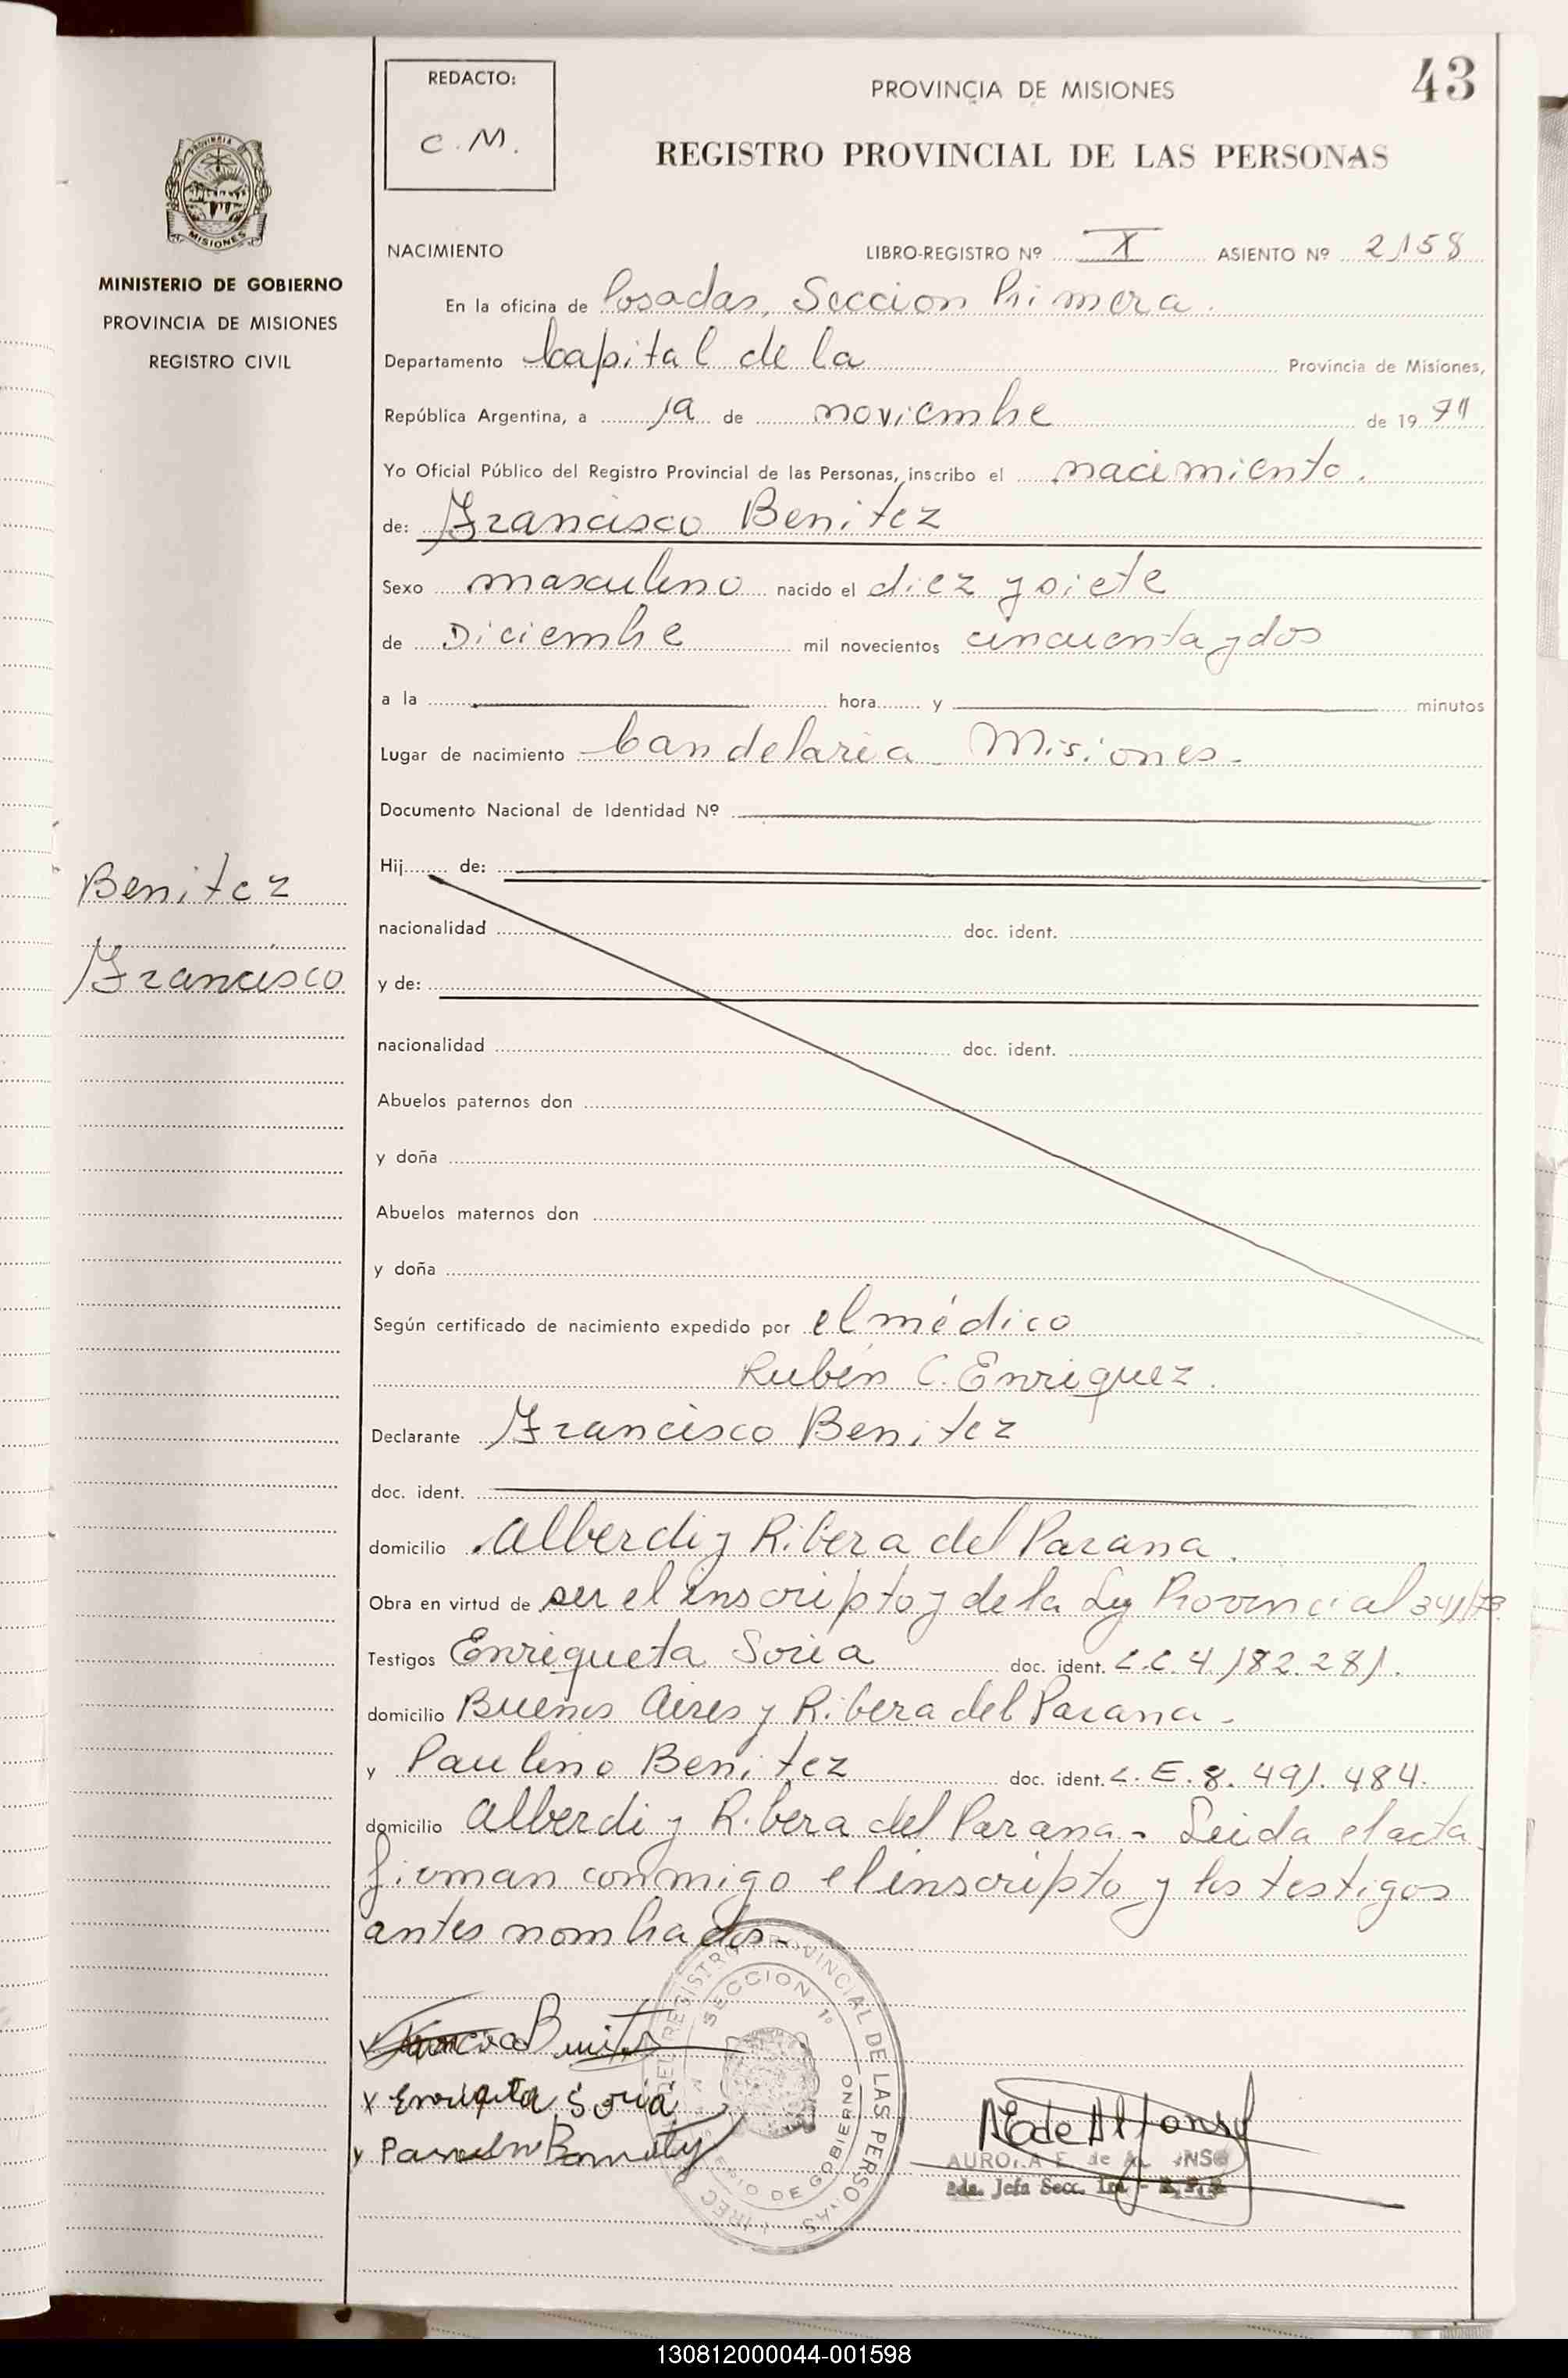 43
REDACTO:
C.M.
PROVINCIA DE MISIONES
REGISTRO PROVINCIAL DE LAS PERSONAS
MISIONES
MINISTERIO DE GOBIERNO
PROVINCIA DE MISIONES
REGISTRO CIVIL
NACIMIENTO LIBRO-REGISTRO Nº X ASIENTO Nº 2158
En la oficina de Posadas, Seccion Primera.
Departamento Capital de la Provincia de Misiones,
República Argentina, a de noviembre de 19
Yo Oficial Público del Registro Provincial de las Personas, inscribo el nacimiento.
de: Francisco Benitez
Sexo masculino nacido el diez y siete
de Diciembre mil novecientos cincuenta y dos
a la hora y minutos
Lugar de nacimiento Candelaria Misiones.
Documento Nacional de Identidad Nº
Hij de:
Benitez
nacionalidad doc. ident.
Francisco
y de:
nacionalidad doc. ident.
Abuelos paternos don
y doña
Abuelos maternos don
y doña
Según certificado de nacimiento expedido por el médico
Rubén C. Enriquez.
Declarante Francisco Benitez
doc. ident.
domicilio Alberdi y Ribera del Parana.
Obra en virtud de ser el inscripto y de la Ley Provincial
Testigos Enriqueta Soria doc. ident. L.C. 4.182.281.
domicilio Buenos Aires y Ribera del Parana.
y Paulino Benitez doc. ident. L.E. 8.491.484.
domicilio Alberdi y Ribera del Parana - Leida el acta
firman conmigo el inscripto y los testigos
antes nombrados.-
REGISTRO PROVINCIAL DE LAS PERSONAS
SECCION 1º
MINISTERIO DE GOBIERNO
Benitez
x Enriqueta Soria
AURORA E. de ALFONSO
2da. Jefa Secc. 1ra. - R.P.P.
130812000044-001598